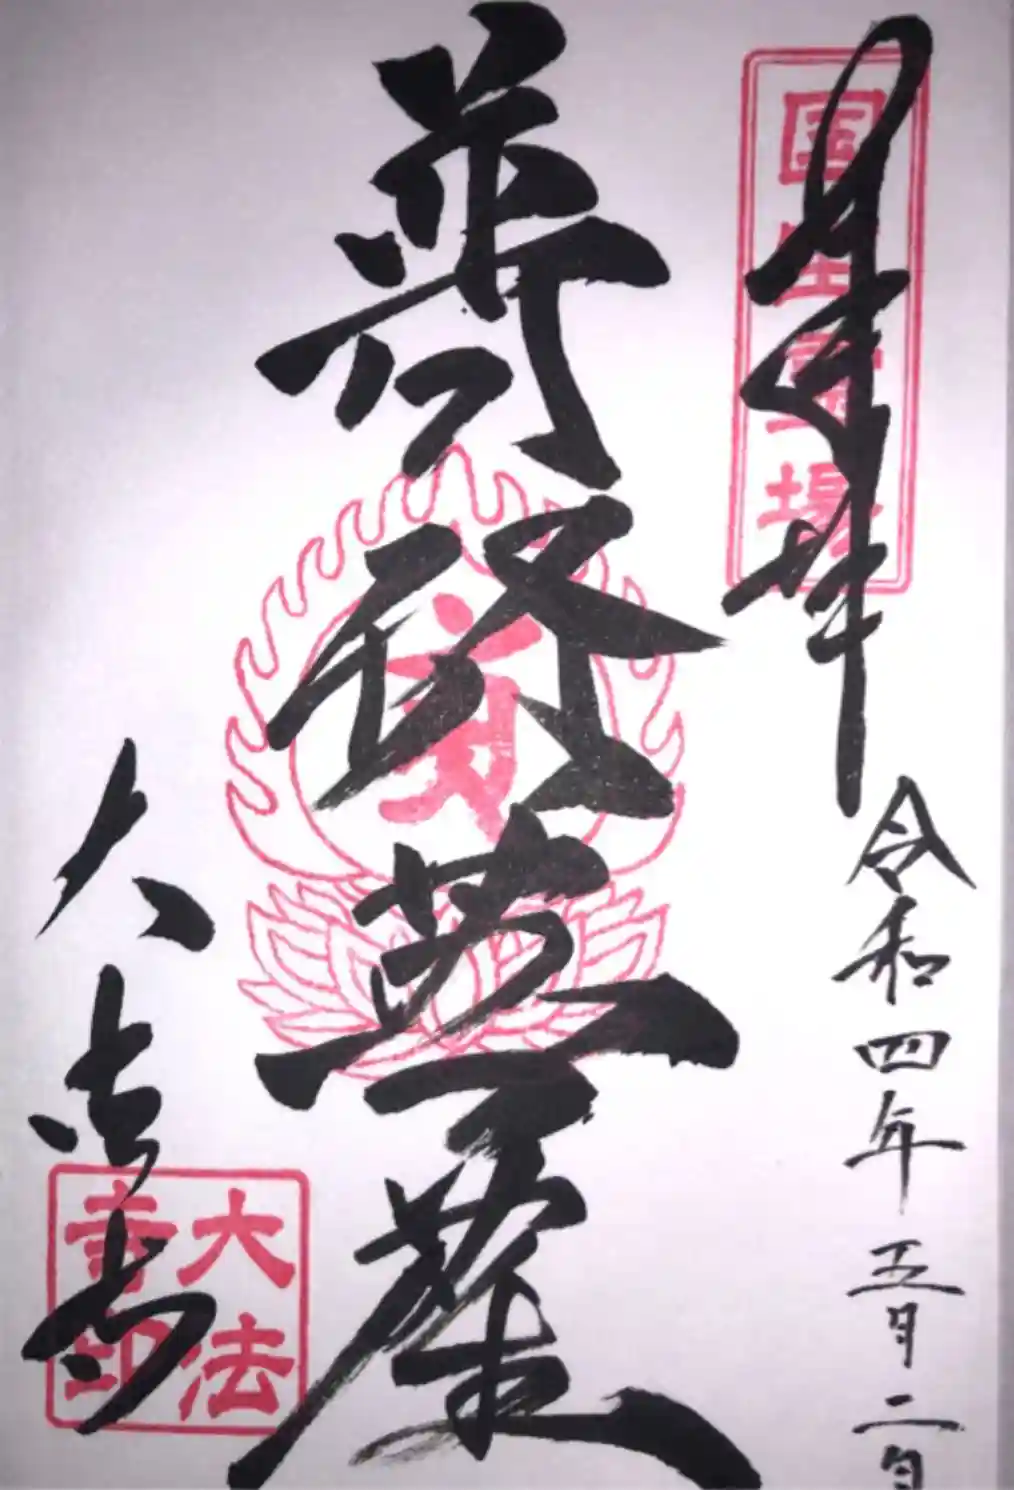 国生霊場
奉拝
令和四年五月二日
普賢菩薩
大法寺
大法寺印